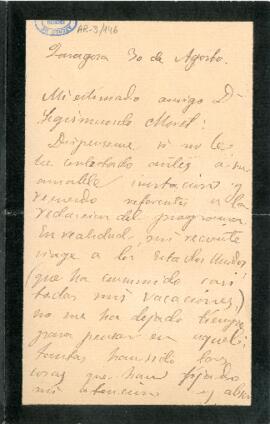 AR-3/146
Zaragoza 30 de Agosto.
Mi estimado amigo Dn
Segismundo Moret:
Dispénseme si no le
he contestado antes á su
amable invitación y
recuerdo referentes á la
redaccion del programa.
En realidad, mi reciente
viage a los Estados Unidos
(que ha consumido casi
todas mis vacaciones,)
no me ha dejado tiempo
para pensar en aquel:
tantas han sido las
cosas que han fijado
mi atencion y